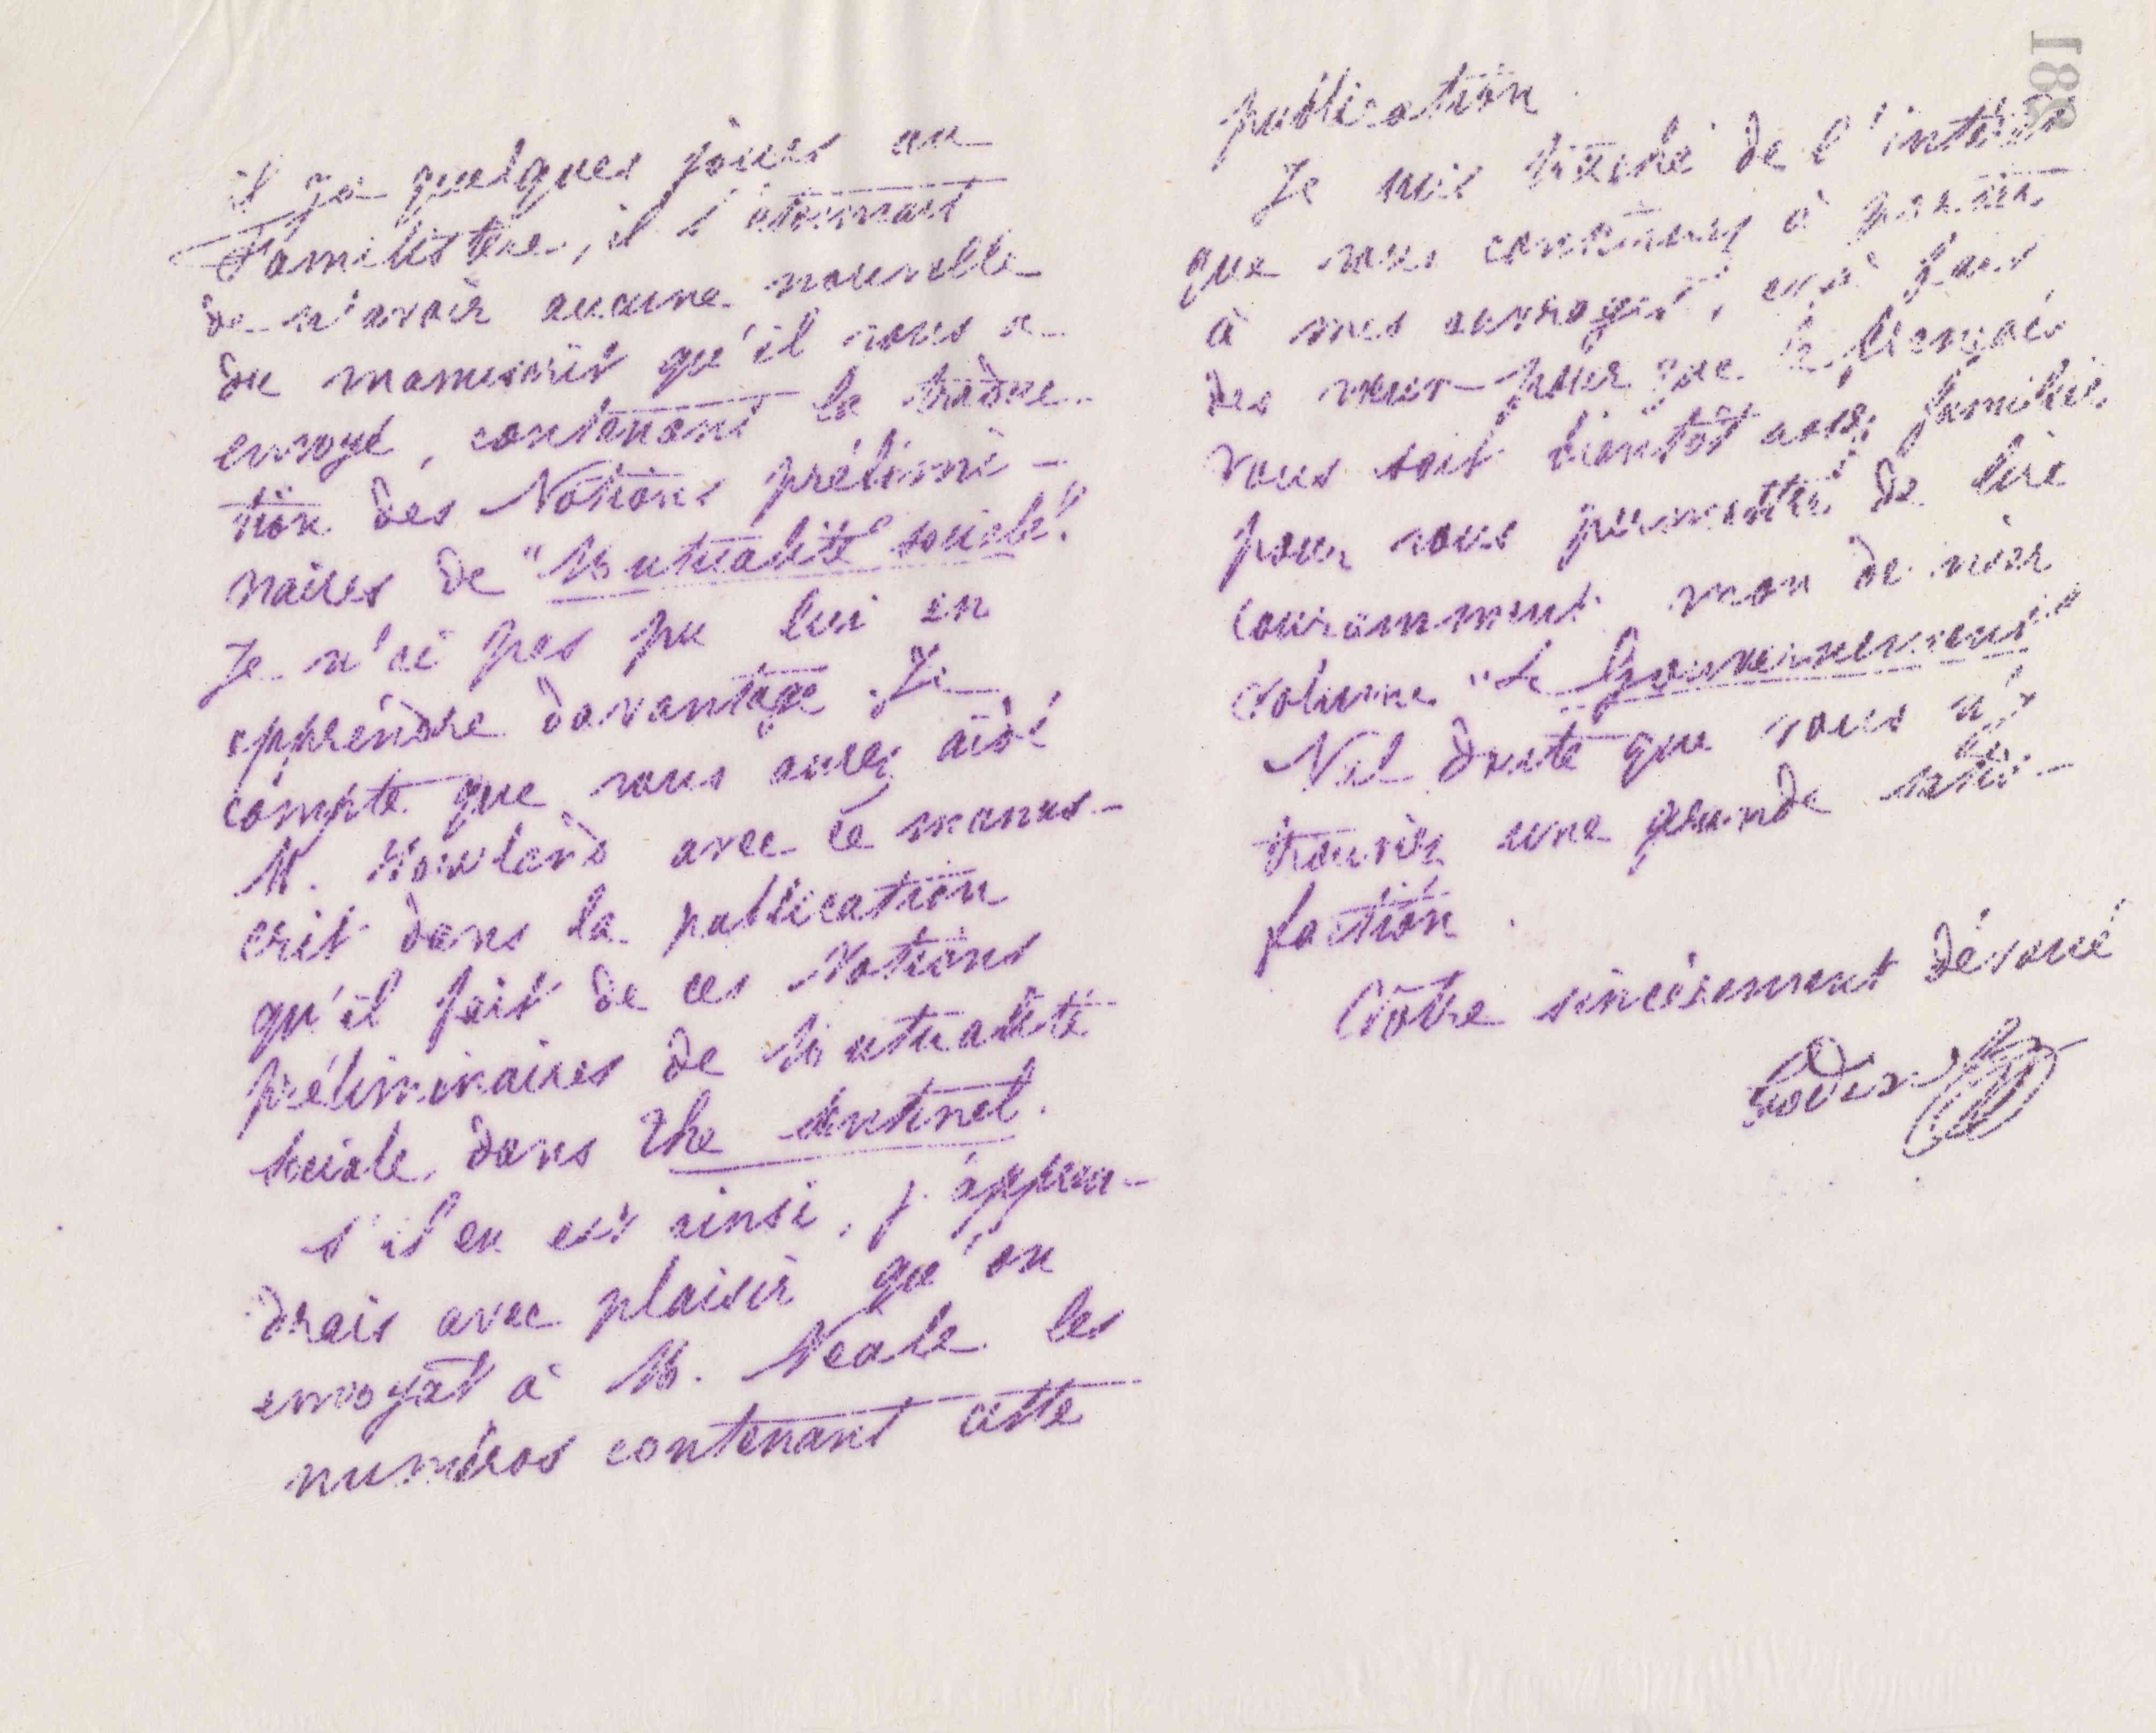 il y a quelques jours au
Familistère, il s'étonnait
de n'avoir aucune nouvelle
du manuscrit qu'il vous a
envoyé, contenant la traduc-
tion des Notions prélimi-
naires de "Mutualité sociale".
Je n'ai pas pu lui en
apprendre davantage. Je
compte que vous aurez aidé
M. Howland avec ce manus-
crit dans la publication
qu'il fait de ces Notions
préliminaires de Mutualité
sociale dans The Sentinel.
S'il en est ainsi, j'appren-
drais avec plaisir qu'on
envoyât à M. Neale les
numéros contenant cette
publication.
Je suis touché de l'intérêt
que vous continuez à prendre
à mes ouvrages, et je fais
des vœux pour que le français
vous soit bientôt assez familier
pour vous permettre de lire
couramment mon dernier
volume "Le Gouvernement"
Nul doute que vous n'y
trouviez une grande satis-
faction.
Votre sincèrement dévoué
Godin
188